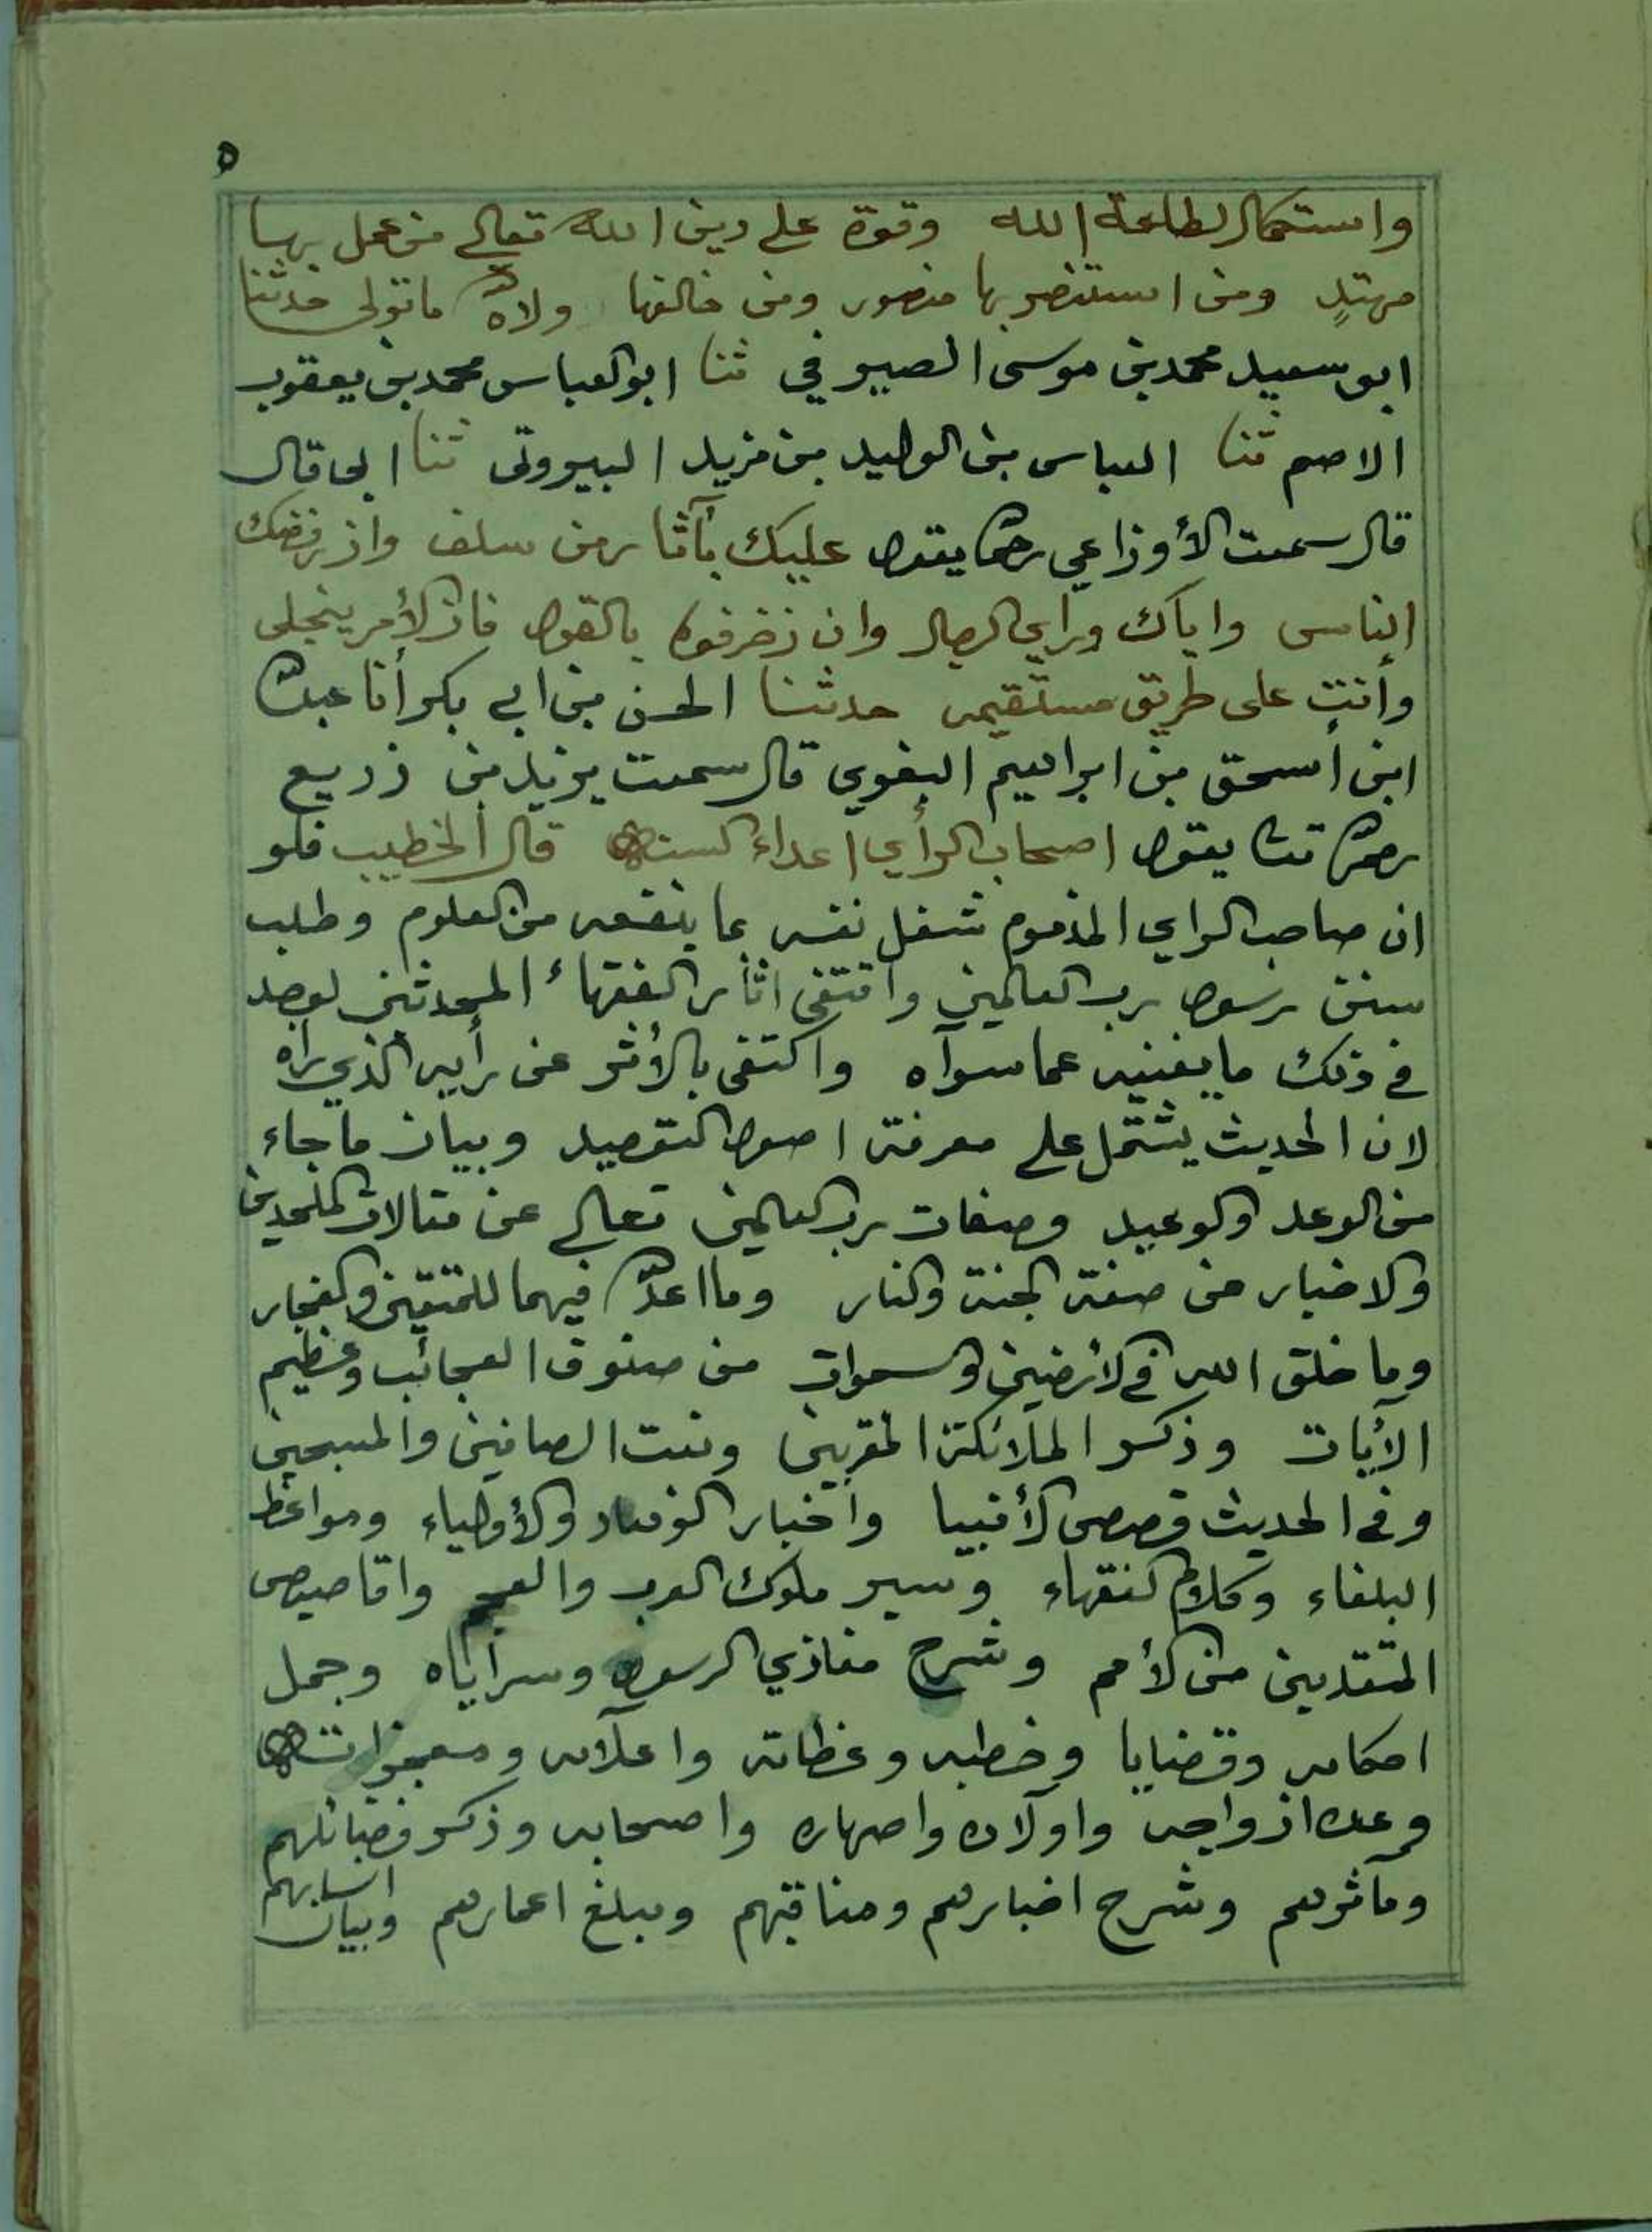 ٥
واستكمال لطاعة الله وقوة على دين الله تعالى من عمل بها
مهتدٍ ومن استنصر بها منصور ومن خالفها ولاه الله ما تولى حدثنا
ابو سعيد محمد بن موسى الصيرفي ثنا ابو العباس محمد بن يعقوب
الاصم ثنا العباس بن الوليد بن مزيد البيروتي ثنا ابي قال
قال سمعت الأوزاعي رحمه الله يقول عليك بآثار من سلف وان رفضك
الناس واياك وراي الرجال وان زخرفوه بالقول فان الأمر ينجلى
وأنت على طريق مستقيم حدثنا الحسن بن ابي بكر أنا عبد الله
ابن أسحق بن ابراهيم البغوي قال سمعت يزيد بن زريع
رحمه الله تعالى يقول اصحاب الرأي اعداء السنة قال الخطيب فلو
ان صاحب الراي المذموم شغل نفسه بما ينفعه من العلوم وطلب
سنن رسول رب العالمين واقتفى اثار الفقهاء المحدثين لوجد
في ذلك ما يغنيه عما سواه واكتفى بالأثر عن رأيه الذي راه
لان الحديث يشتمل على معرفة اصول التوحيد وبيان ما جاء
من الوعد والوعيد وصفات رب العالمين تعالى عن مقالات الملحدين
والاخبار من صفة الجنة والنار وما اعد الله فيهما للمتقين والفجار
وما خلق الله في الأرضين والسموات من صنوف العجائب وعظيم
الأيات وذكر الملائكة المقربين ونعت الصافين والمسبحين
وفي الحديث قصص الأنبيا واخبار الزهاد والأولياء ومواعظ
البلغاء وكلام الفقهاء وسير ملوك العرب والعجم واقاصيص
المتقدمين من الأمم وشرح مغازي الرسول وسراياه وجمل
احكامه وقضايا وخطبه وعظاته واعلامه ومعجزاته
وعدة ازواجه واولاده واصهاره واصحابه وذكر فضائلهم
ومآثرهم وشرح اخبارهم ومناقبهم ومبلغ اعمارهم وبيان انسابهم